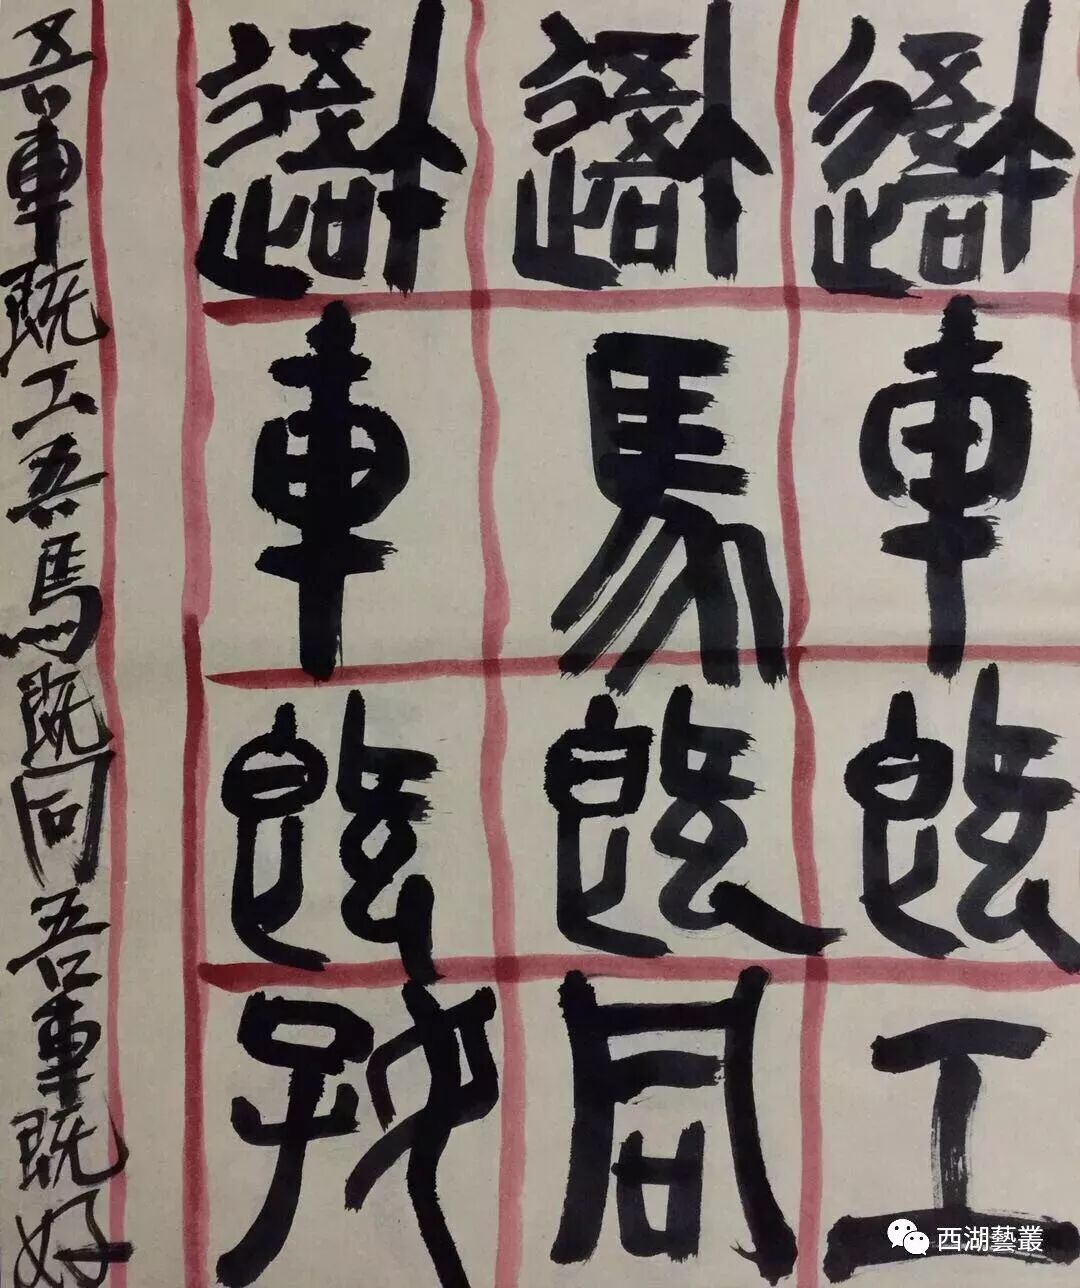 吾車既工
吾馬既同
吾車既好
吾車既工吾馬既同吾車既好
西湖藝叢